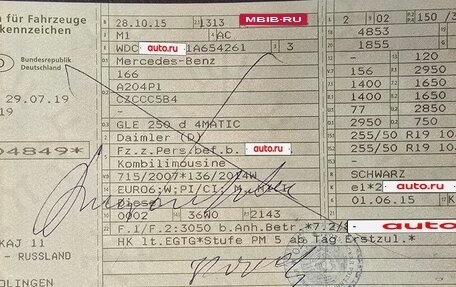 n für Fahrzeuge
kennzeichen
Bundesrepublik
Deutschland
29.07.19
04849*
KAJ 11
- RUSSLAND
DLINGEN
B 28.10.15 1313 MBIB-RU
J M1 4 AC
E WDC auto.ru 1A654261 3 3
Mercedes-Benz
166
A204P1
CZCCC5B4
D.3 GLE 250 d 4MATIC
2 Daimler (D)
5 Fz.z.Pers.bef.b. auto.ru
Kombilimousine
V.9 715/2007*136/2014W
14 EURO6;W;PI/CI;
Diesel
0002 36N0 2143
22 F.1/F.2:3050 b.Anh.Betr.*7.2/8
HK lt.EGTG*Stufe PM 5 ab Tag Erstzul.*
2 02 150 /3
18 4853
20 1855
12 - 13 120
V.7 156 2950
7.1 1400 1650
8.1 1400 1650
U.1 77 2850
O.1 2950 750
15.1 255/50 R19 10
255/50 R19 10
R SCHWARZ
K e1*2 auto.ru
6 01.06.15
auto